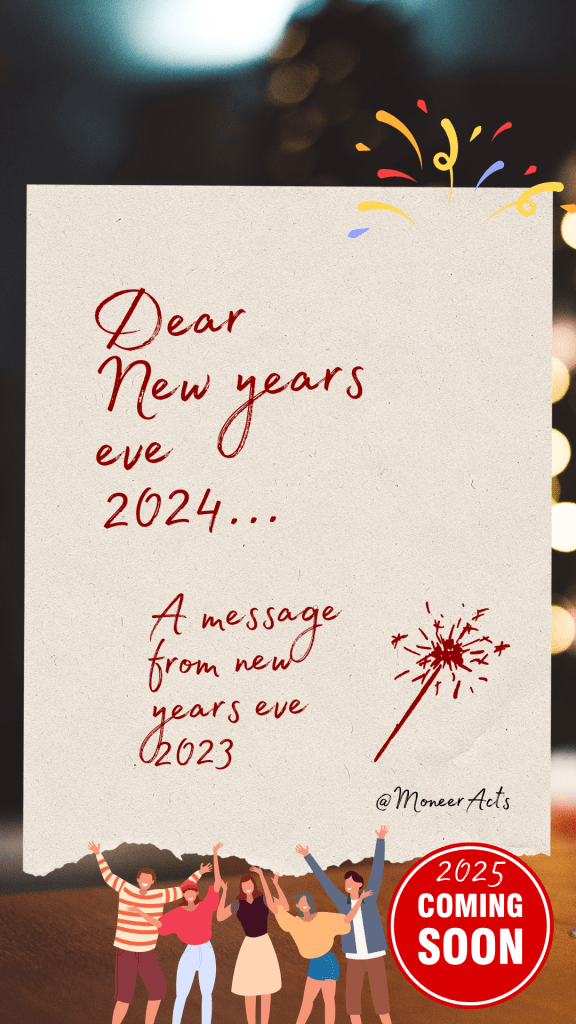 Dear
New years
eve
2024...
A message
from new
years eve
2023
@MoneerActs
2025
COMING
SOON